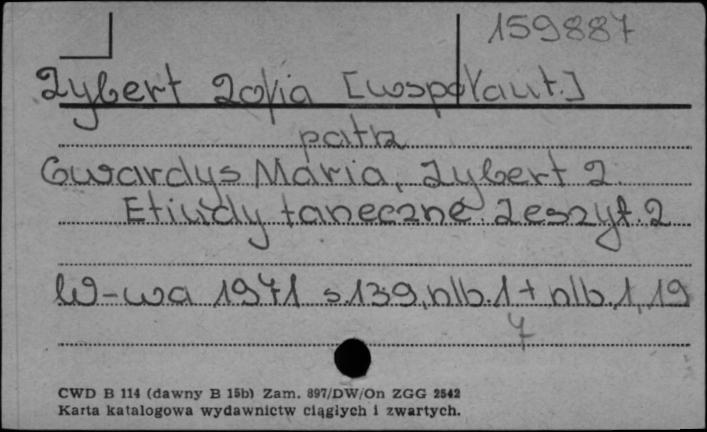 159887
Zybert Zofia [współaut.]
patrz
Gwardys Maria, Zybert Z.
Etiudy taneczne. Zeszyt. 2
W-wa 1971 s.139, nlb.1 + nlb.1, 19
7
CWD B 114 (dawny B 15b) Zam. 897/DW/On ZGG 2542
Karta katalogowa wydawnictw ciągłych i zwartych.